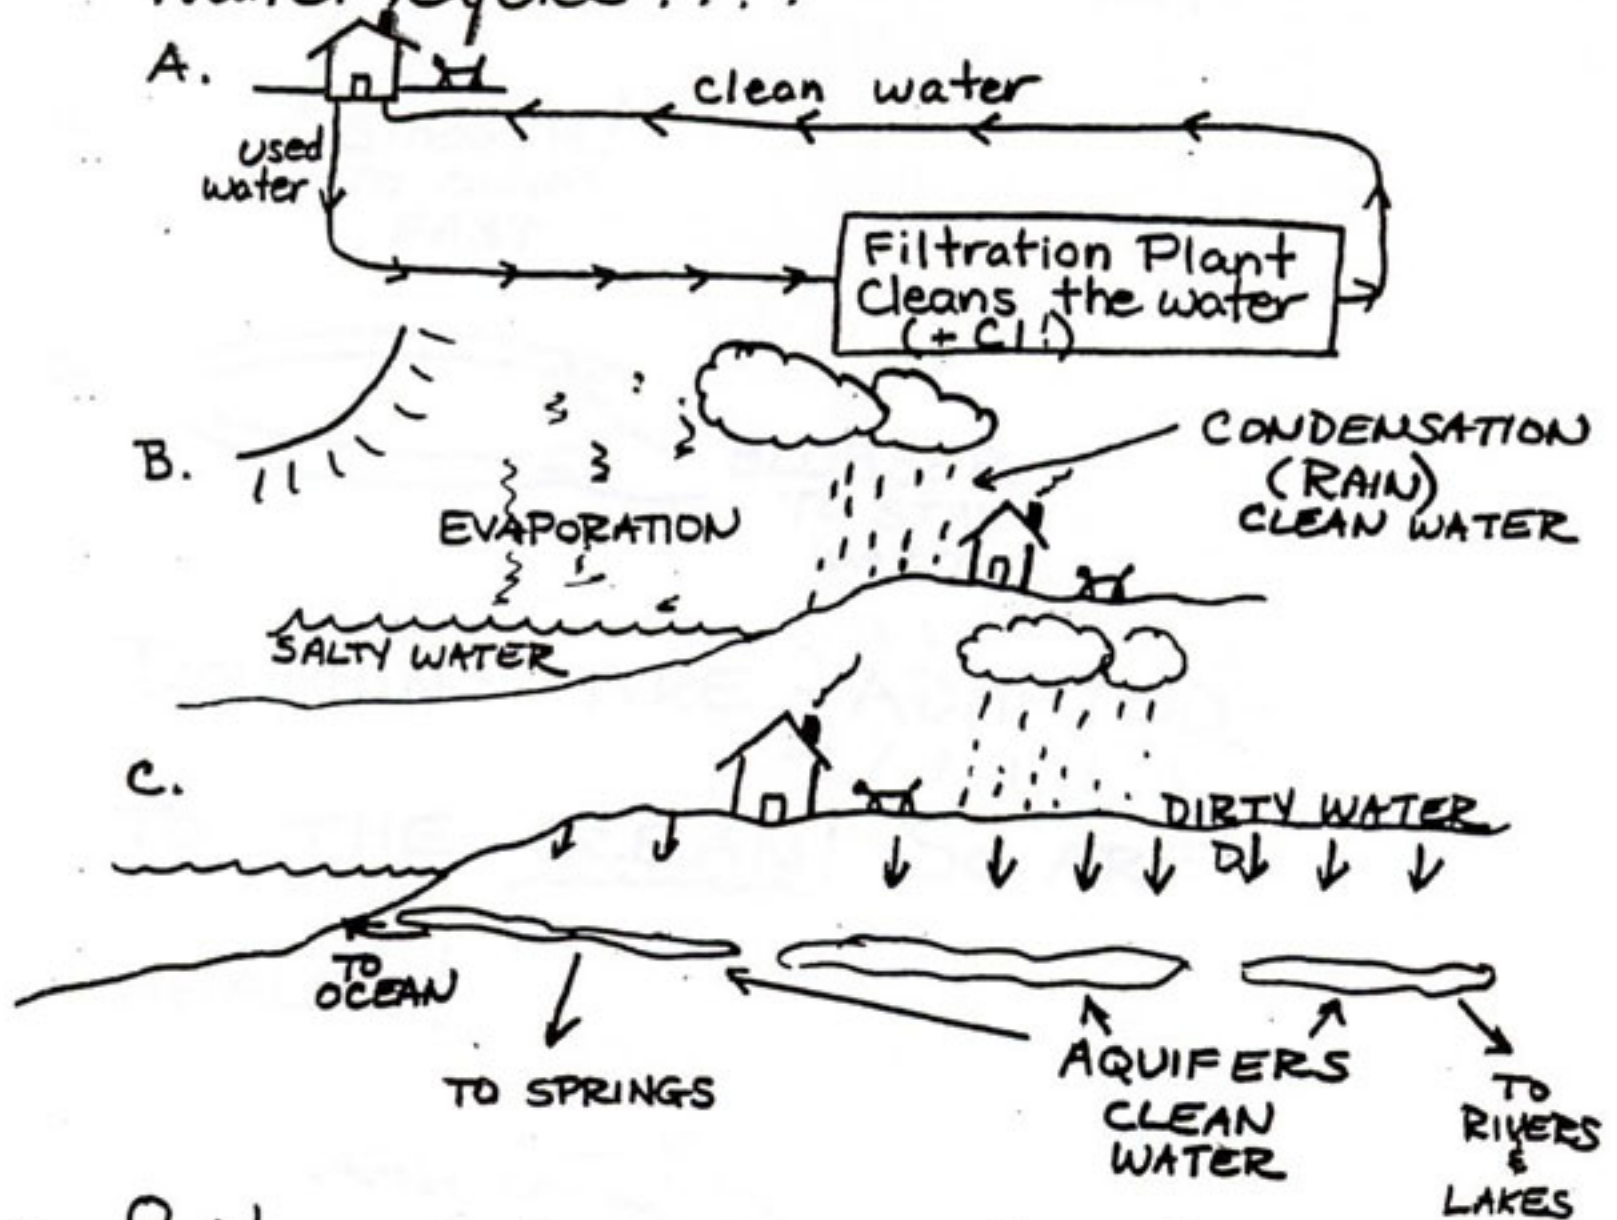 Water Cycles . . . .
A.
clean water
used
water
Filtration Plant
Cleans the water
(+ Cl!)
B.
CONDENSATION
(RAIN)
CLEAN WATER
EVAPORATION
SALTY WATER
C.
DIRTY WATER
TO
OCEAN
TO SPRINGS
AQUIFERS
CLEAN
WATER
TO
RIVERS
&
LAKES